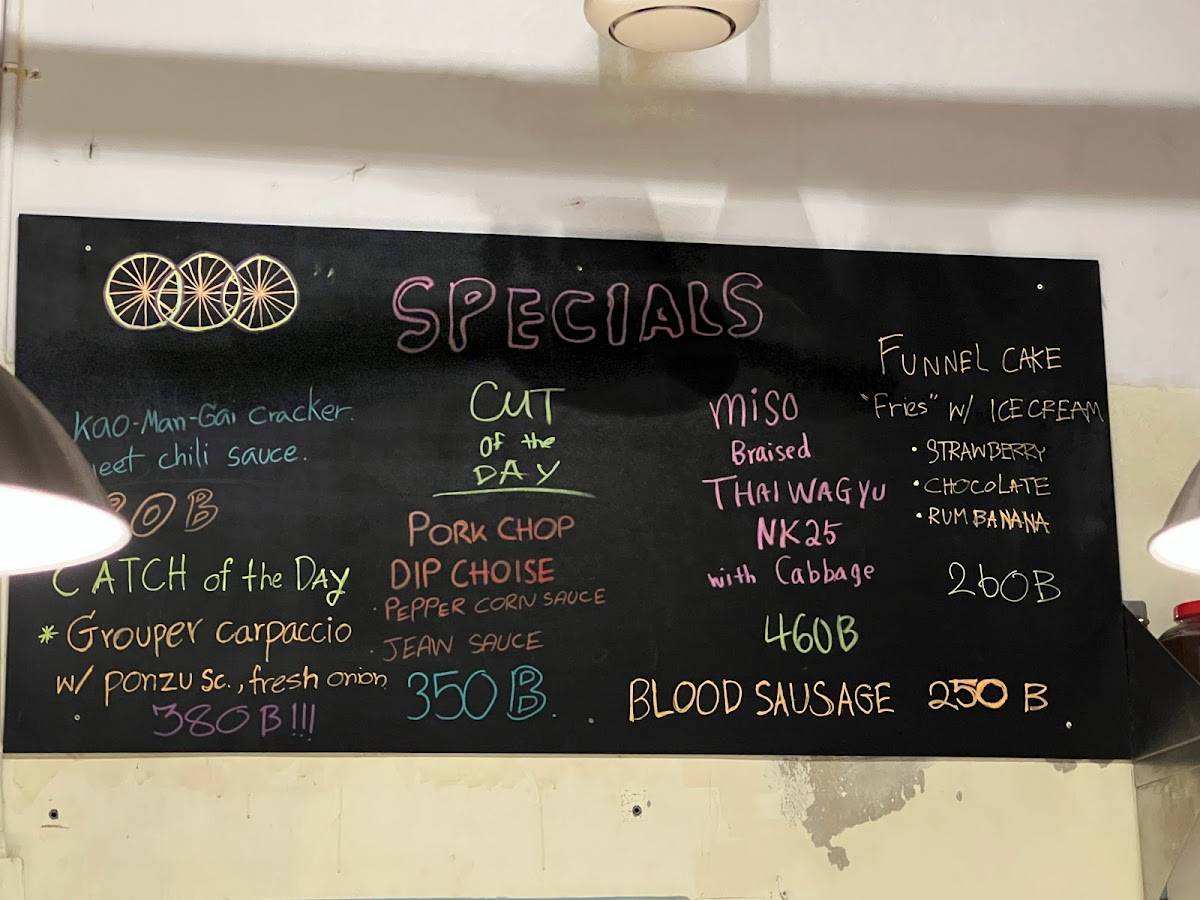 SPECIALS
Kao-Man-Gai cracker.
chili sauce.
CATCH of the DAY
* Grouper carpaccio
w/ ponzu sc., fresh onion
380B!!!
CUT
of the
DAY
PORK CHOP
DIP CHOISE
· PEPPER CORN SAUCE
· JEAW SAUCE
350B.
miso
Braised
THAI WAGYU
NK25
with Cabbage
460B
FUNNEL CAKE
"Fries" w/ ICE CREAM
· STRAWBERRY
· CHOCOLATE
· RUM BANANA
260B
BLOOD SAUSAGE 250 B